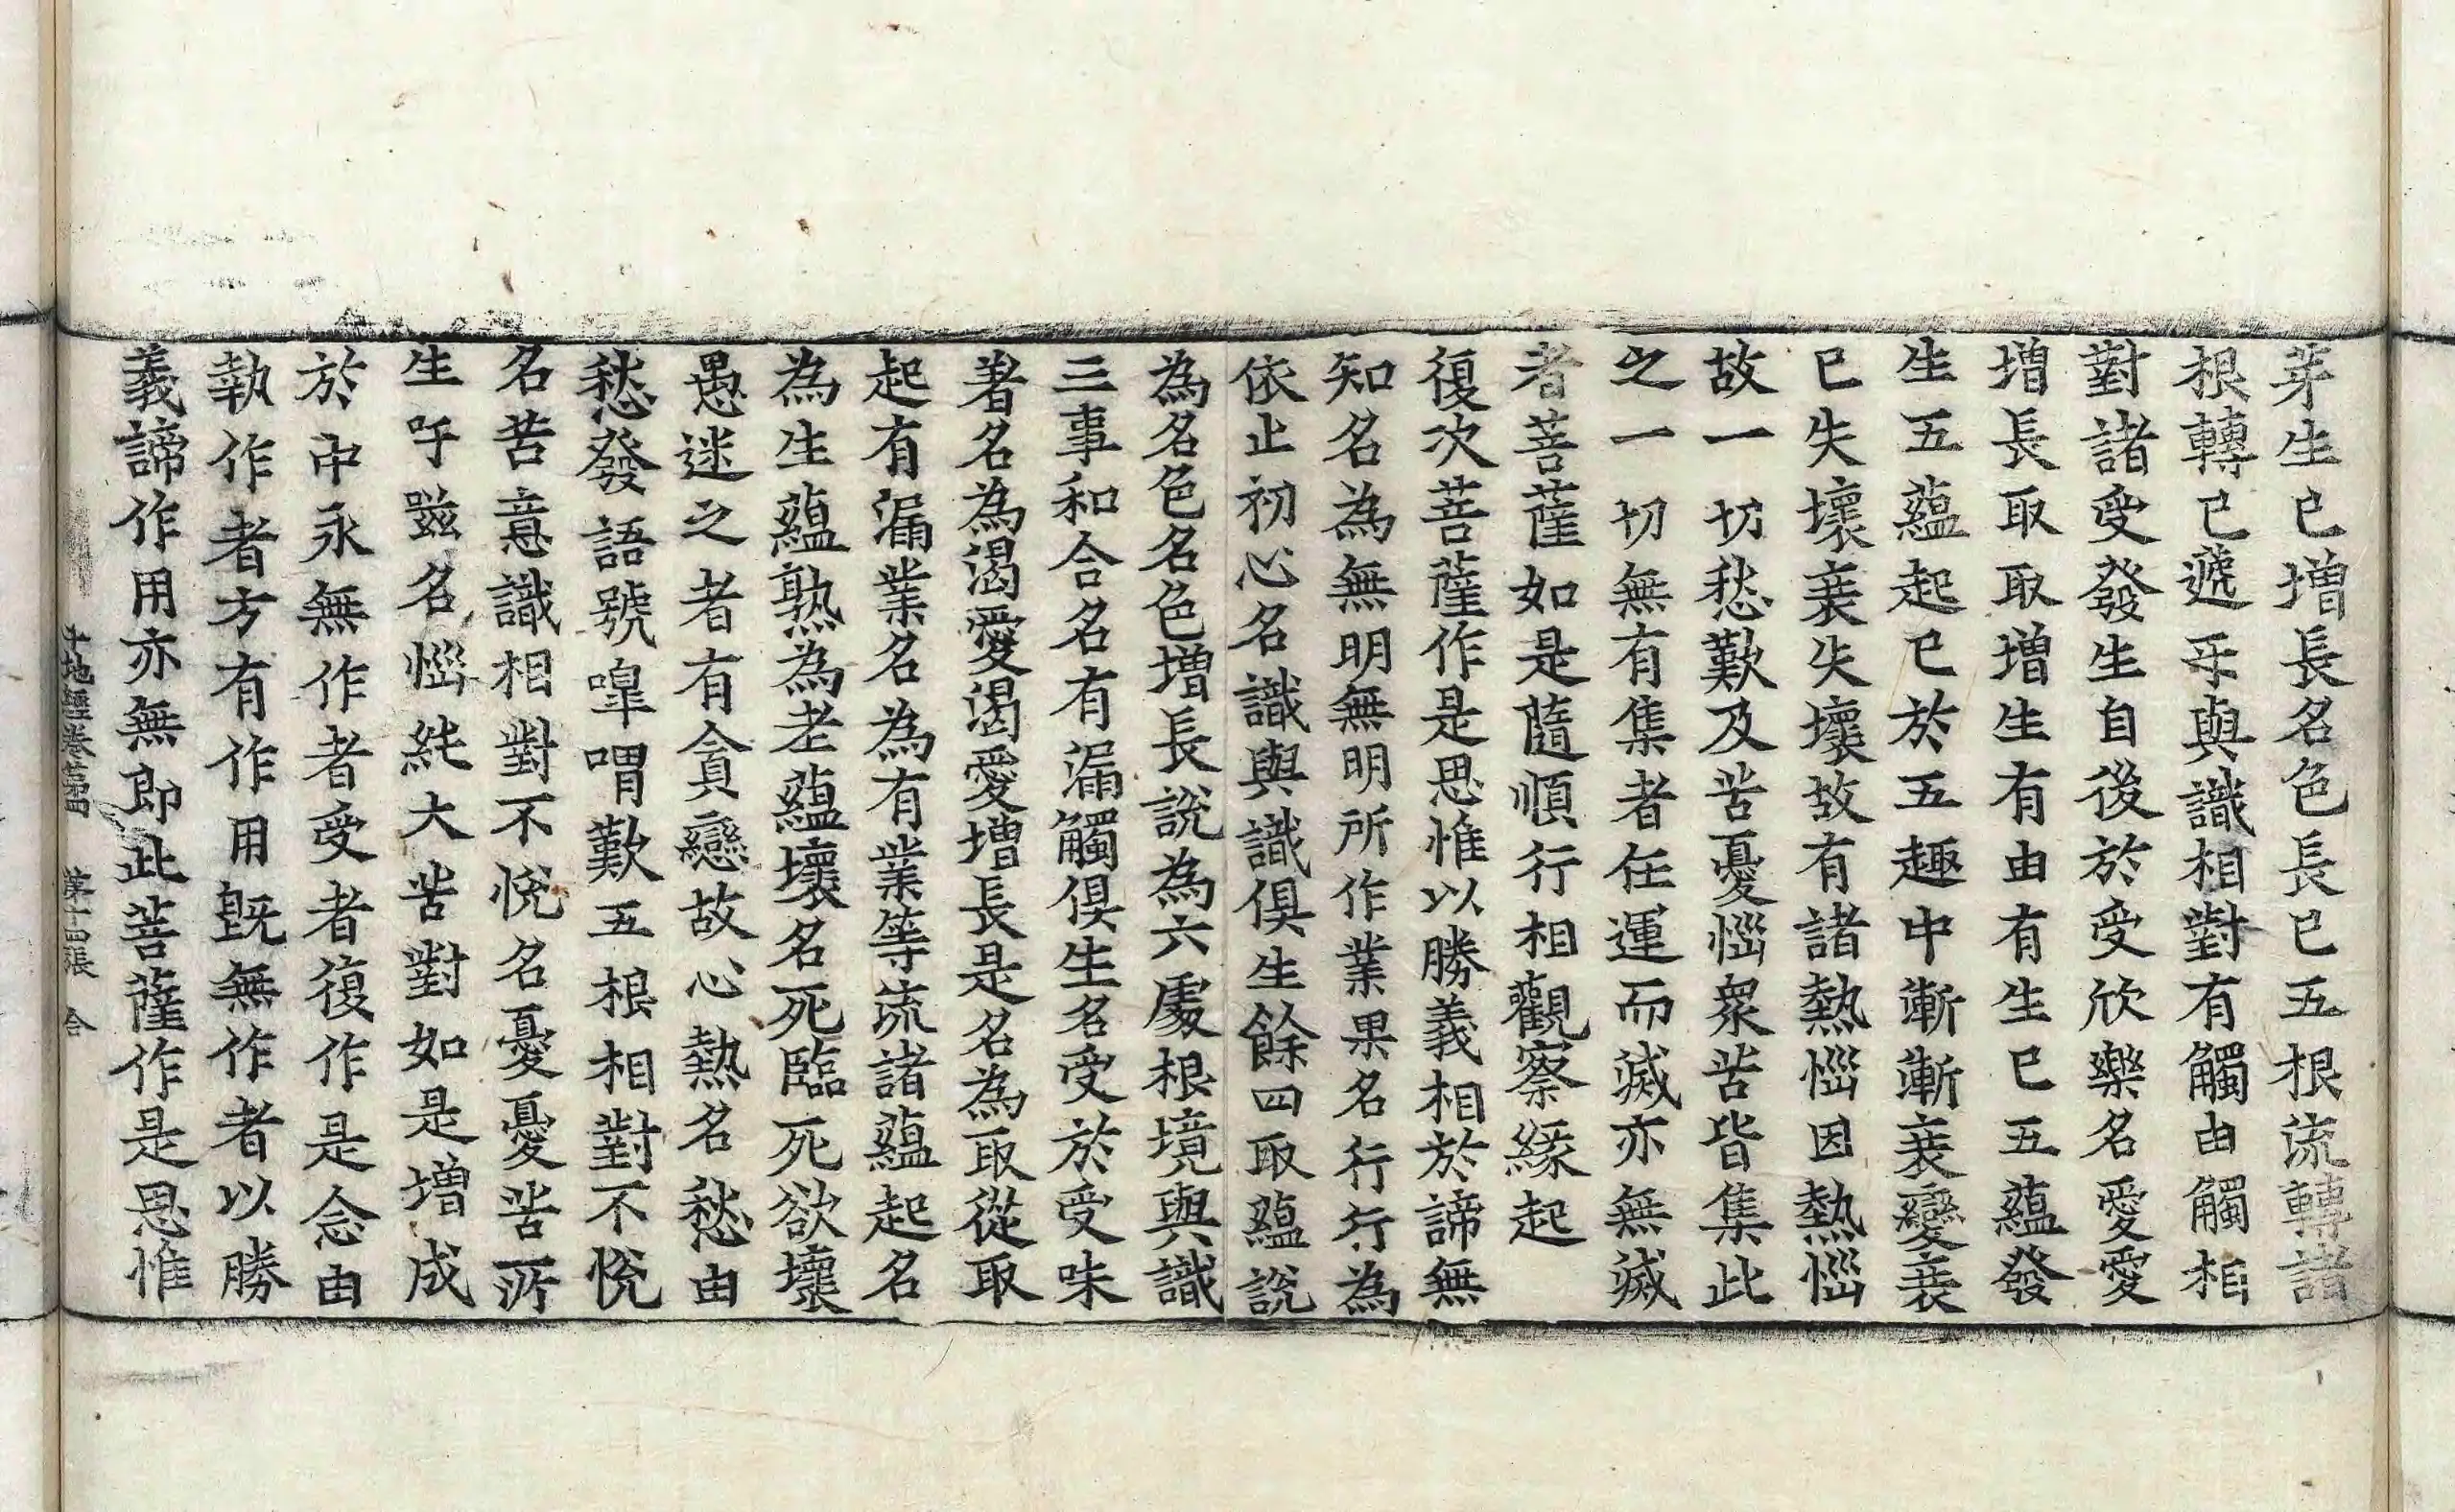 芽生已增長名色長已五根流轉諸
根轉已遞互與識相對有觸由觸相
對諸受發生自後於受欣樂名愛愛
增長取取增生有由有生已五蘊發
生五蘊起已於五趣中漸漸衰變衰
已失壞衰失壞故有諸熱惱因熱惱
故一切愁歎及苦憂惱衆苦皆集此
之一切無有集者任運而滅亦無滅
者菩薩如是隨順行相觀察緣起
復次菩薩作是思惟以勝義相於諦無
知名為無明無明所作業果名行行為
依止初心名識與識俱生餘四取蘊說
為名色名色增長說為六處根境與識
三事和合名有漏觸俱生名受於受味
著名為渴愛渴愛增長是名為取從取
起有漏業名為有業等流諸蘊起名
為生蘊熟為老蘊壞名死臨死欲壞
愚迷之者有貪戀故心熱名愁由
愁發語號嘷喟歎五根相對不悅
名苦意識相對不悅名憂憂苦所
生吁嗞名惱純大苦對如是增成
於中永無作者受者復作是念由
執作者方有作用既無作者以勝
義諦作用亦無即此菩薩作是思惟
十地經卷第四　第十四張　合